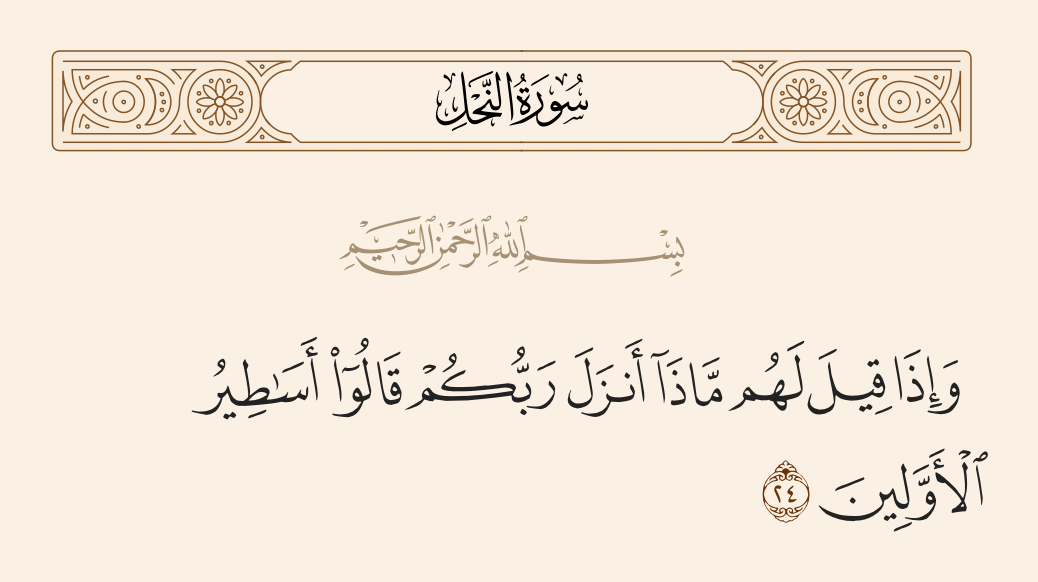 سُورَةُ النَّحْلِ
بِسْمِ ٱللَّهِ ٱلرَّحْمَٰنِ ٱلرَّحِيمِ
وَإِذَا قِيلَ لَهُم مَّاذَآ أَنزَلَ رَبُّكُمْ قَالُوٓا۟ أَسَٰطِيرُ
ٱلْأَوَّلِينَ ٢٤